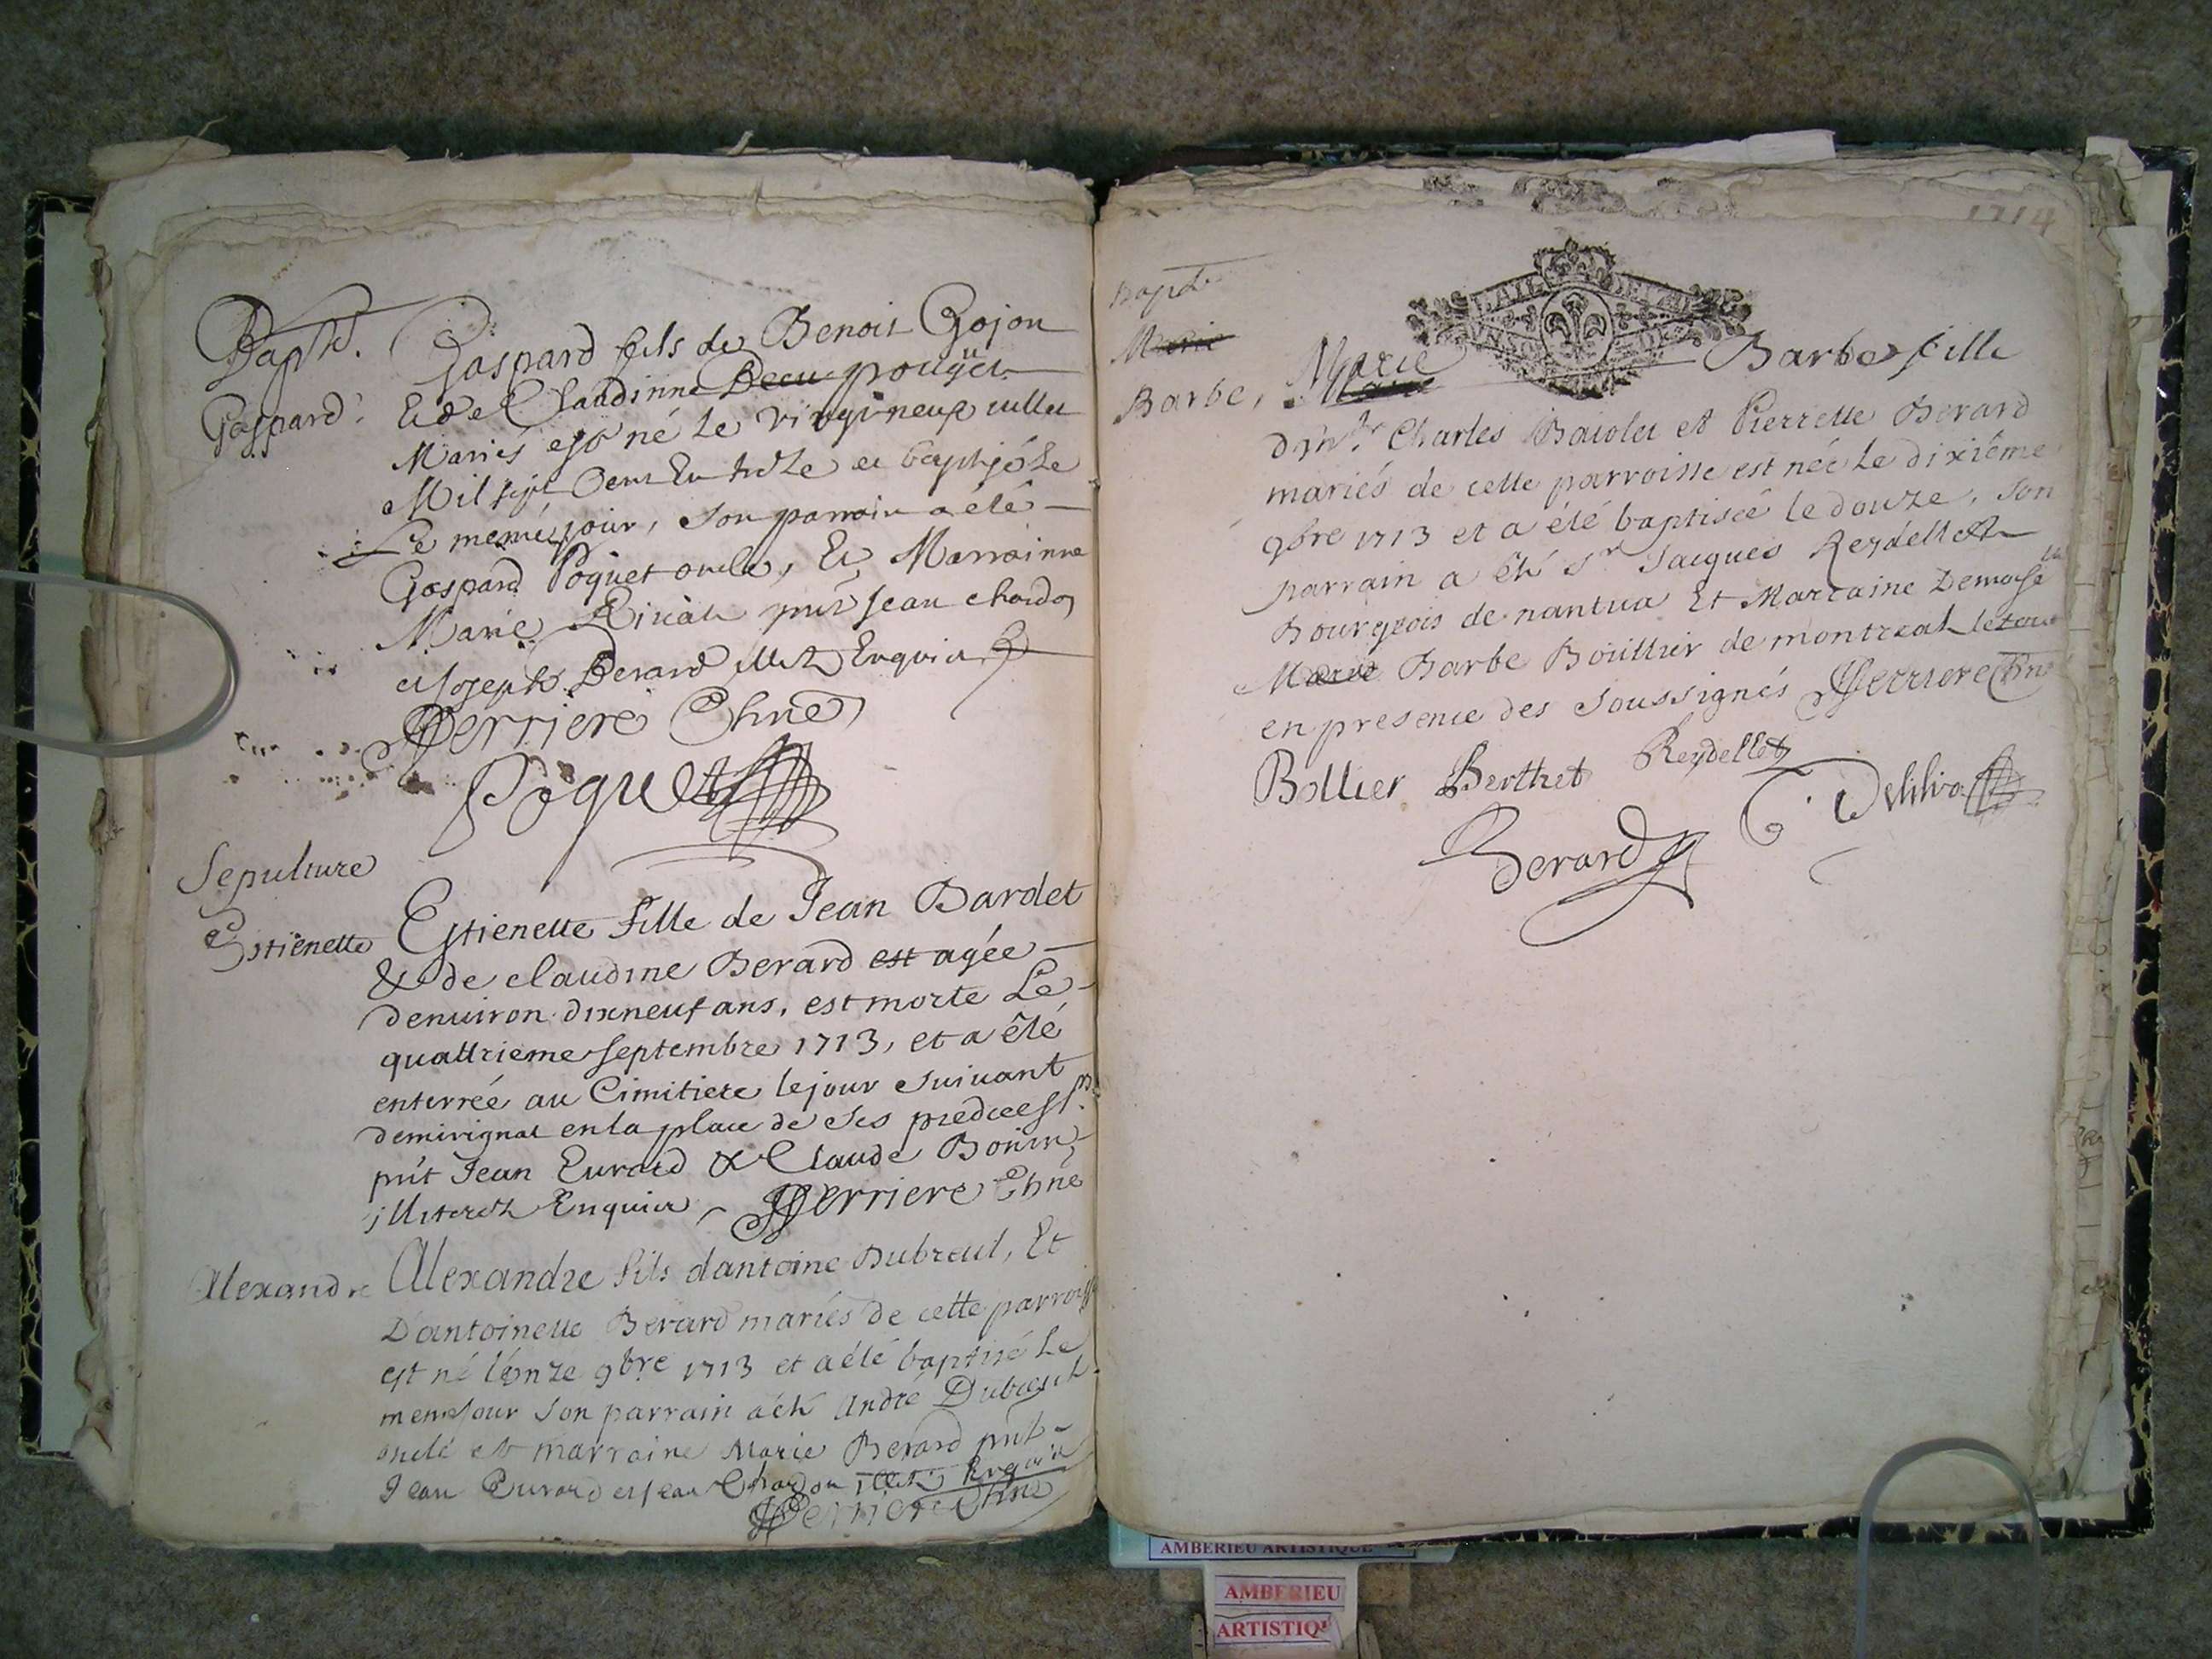 Bapt.
Gaspard.
Gaspard fils de Benoit Gojon
Et de Claudinne poguet
Mariés est né le vingt neuf juillet
Mil sept Cent Et treize et baptisé Le
Le meme jour, Son parrain a été
Gaspard Poguet oncle, Et Marrainne
Marie pnts Jean chardon
et Joseph Berard illet Enquis
Perriere Chne
Poguet
Sepulture
Estienette
Estienette fille de Jean Bardet
& de claudine Berard est agée
denuiron dixneuf ans, est morte Le
quattrieme septembre 1713, et a êté
enterrée au Cimitiere le jour suivant
demirignat en la place de ses predecess.rs
pnt Jean Eurard & Claude Bonin
illiterez Enquis Perriere Chne
Alexandre
Alexandre fils dantoine Dubreul, Et
Dantoinette Berard mariés de cette parroiss
est né lonze 9bre 1713 et a élé baptisé Le
meme jour Son parrain a été André Dubreul
oncle et marraine Marie Berard pnt
Jean Eurard et jean Chardon illet. Enquis
Perriere Chne
1714
Bapt.
Marie
Barbe,
Marie Barbe fille
de Mr. Charles Baiolet et Pierrette Berard
mariés de cette parroisse est née Le dixiême
9bre 1713 et a été baptisée le douze, Son
parrain a été Sr Jacques Reydellet
Bourgeois de nantua Et Marraine Demoiselle
Marie Barbe Boullier de montreal le tout
en presence des Soussignés Perriere Chne
Bollier Berthet Reydellet
Delilia
Berard
AMBERIEU ARTISTIQUE
AMBERIEU
ARTISTIQU